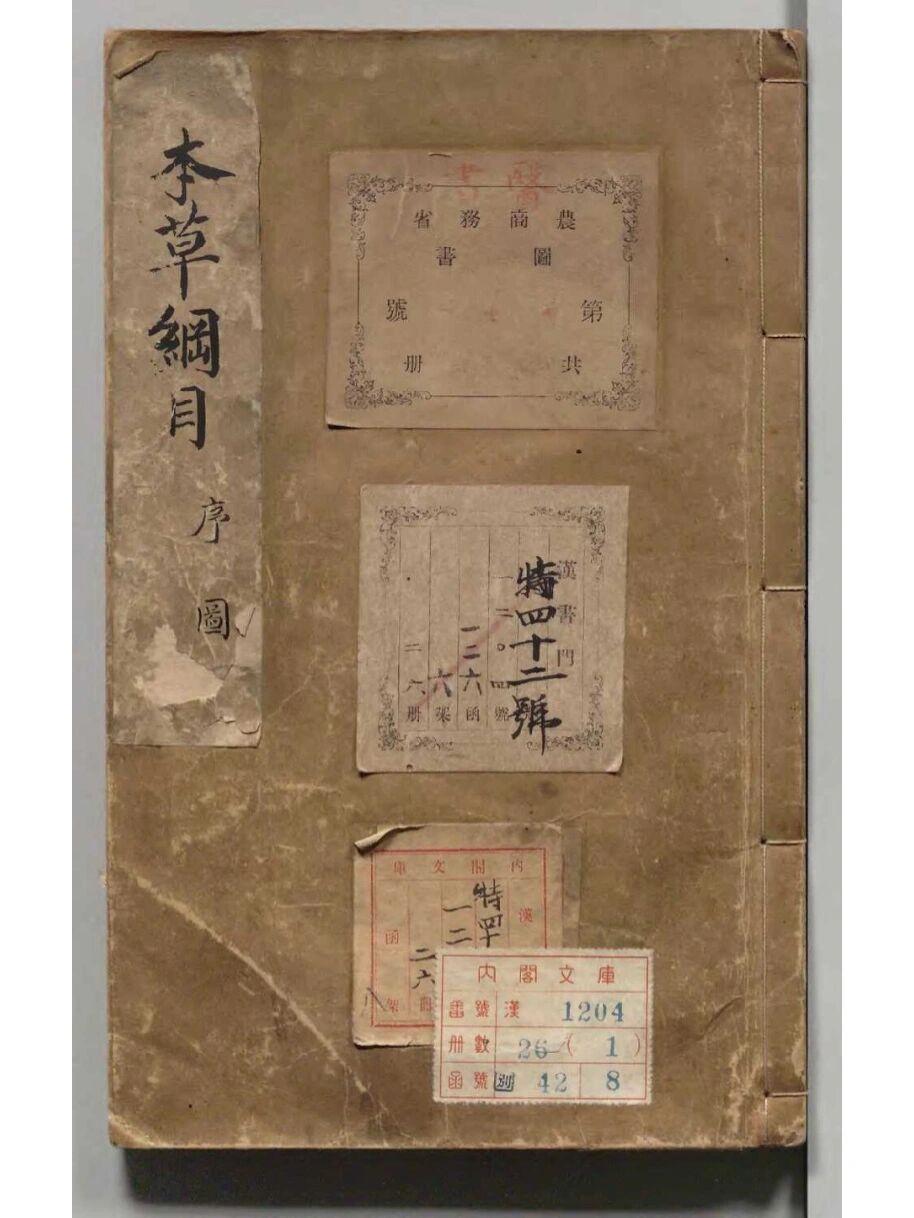 本草綱目 序 圖
醫書
農商務省
圖書
第 號
共 册
漢書門
特四十二號
一二〇四號
一二六函
六架
二六册
內閣文庫
漢
特四十
一二
二六册
函
架
內閣文庫
番號 漢 1204
册數 26 ( 1 )
函號 別 42 8